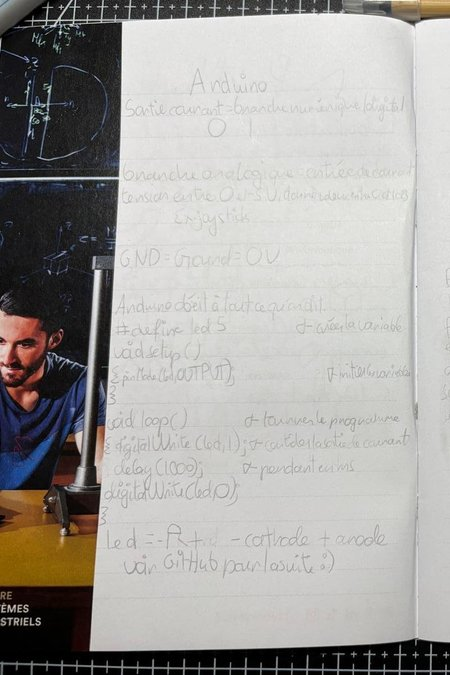 Arduino
Sortie courant = branche numérique / digital
0 1
branche analogique = entrée de courant
tension entre 0 et 5V donnée
Ex: joystick
GND = Ground = 0V
Arduino obéit à tout ce qu'on dit
#define led 5 créer la variable
void setup()
{ pinMode(led, OUTPUT);
}
void loop() tourner le programme
{ digitalWrite(led,1); sortie de courant
delay(1000); pendant en ms
digitalWrite(led,0);
}
Led = - + - cathode + anode
voir GitHub pour la suite :)
RE
ÈMES
STRIELS